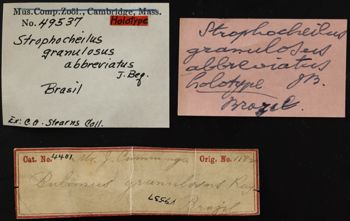 Mus. Comp. Zoöl., Cambridge, Mass.
No. 49537 Holotype
Strophocheilus
granulosus
abbreviatus
J. Beq.
Brasil
Ex: C.A. Stearns Coll.
Strophocheilus
granulosus
abbreviatus
holotype JB.
Brazil
Cat. No. 4401 J. Cummings Orig. No.
Bulimus granulosus
Brazil